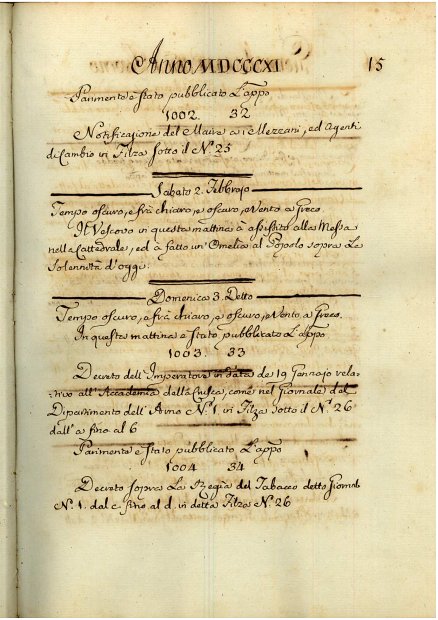 Anno MDCCCXI
15
Parimente è stato pubblicato L'appo
1002. 32
Notificazione del Maire a i Mezzani, ed Agenti
di Cambio in Filza sotto il N.° 25
Sabato 2. Febbrajo
Tempo oscuro, e frà chiaro, e oscuro, e Vento a Greco.
Il Vescovo in questa mattina à assistito alla Messa
nella Cattedrale, ed à fatto un'Omelia al Popolo sopra La
Solennità d'oggi.
Domenica 3. Detto
Tempo oscuro, e frà chiaro, e oscuro, e Vento a Greco.
In questa mattina è stato pubblicato L'appo
1003. 33
Decreto dell'Imperatore in data de 19 Gennajo rela-
tivo all'Accademia della Crusca, come nel Giornale del
Dipartimento dell'Arno N.° 1. in Filza sotto il N.° 26
dall'a fino al 6
Parimente è stato pubblicato L'appo
1004 34
Decreto sopra La Regia del Tabacco detto Giornale
N.° 1. dal c. fino al d. in detta Filza N.° 26